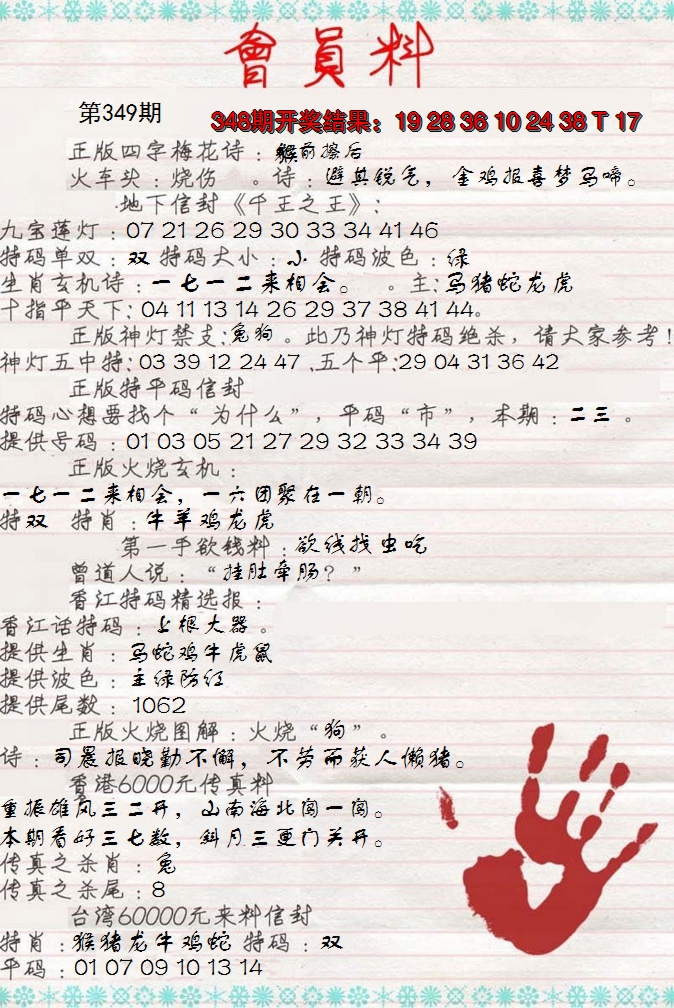 會員料
第349期
348期开奖结果：19 28 36 10 24 38 T 17
正版四字梅花诗：猴前擦后
火车头：烧伤 。诗：避其锐气，金鸡报喜梦马啼。
地下信封《千王之王》：
九宝莲灯：07 21 26 29 30 33 34 41 46
特码单双：双 特码大小：小 特码波色：绿
生肖玄机诗：一七一二来相会。 。主：马猪蛇龙虎
十指平天下：04 11 13 14 26 29 37 38 41 44。
正版神灯禁支：兔狗。此乃神灯特码绝杀，请大家参考！
神灯五中特：03 39 12 24 47 .五个平：29 04 31 36 42
正版特平码信封
特码心想要找个“为什么”，平码“市”，本期：二三 。
提供号码：01 03 05 21 27 29 32 33 34 39
正版火烧玄机：
一七一二来相会，一六团聚在一朝。
特双 特肖：牛羊鸡龙虎
第一手欲钱料：欲钱找虫吃
曾道人说：“挂肚牵肠？”
香江特码精选报：
香江话特码：上根大器。
提供生肖：马蛇鸡牛虎鼠
提供波色：主绿防红
提供尾数：1062
正版火烧图解：火烧“狗”。
诗：司晨报晓勤不懈，不劳而获人懒猪。
香港6000元传真料
重振雄风三二开，山南海北闯一闯。
本期看好三七数，斜月三更门关开。
传真之杀肖：兔
传真之杀尾：8
台湾60000元来料信封
特肖：猴猪龙牛鸡蛇 特码：双
平码：01 07 09 10 13 14